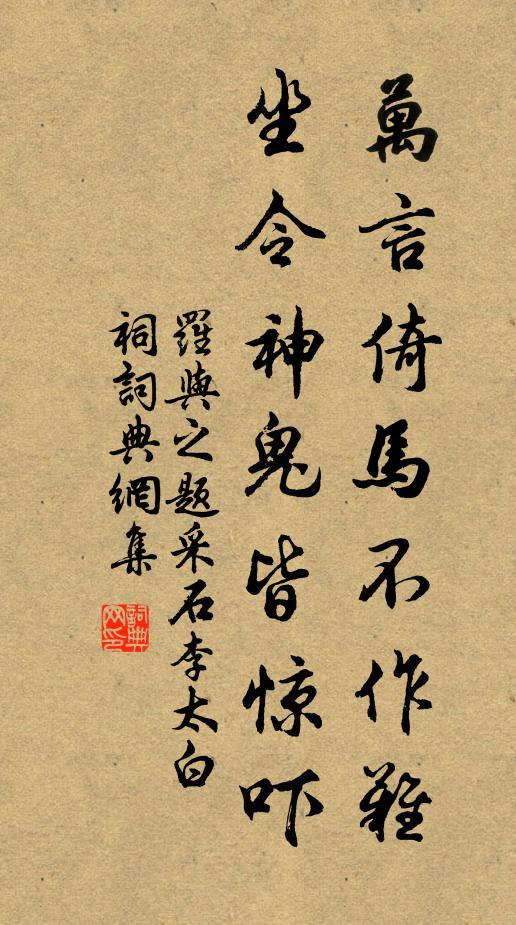 萬言倚馬不作難
坐令神鬼皆惊吓
羅與之题采石李太白
祠詞典網集
詞典网印